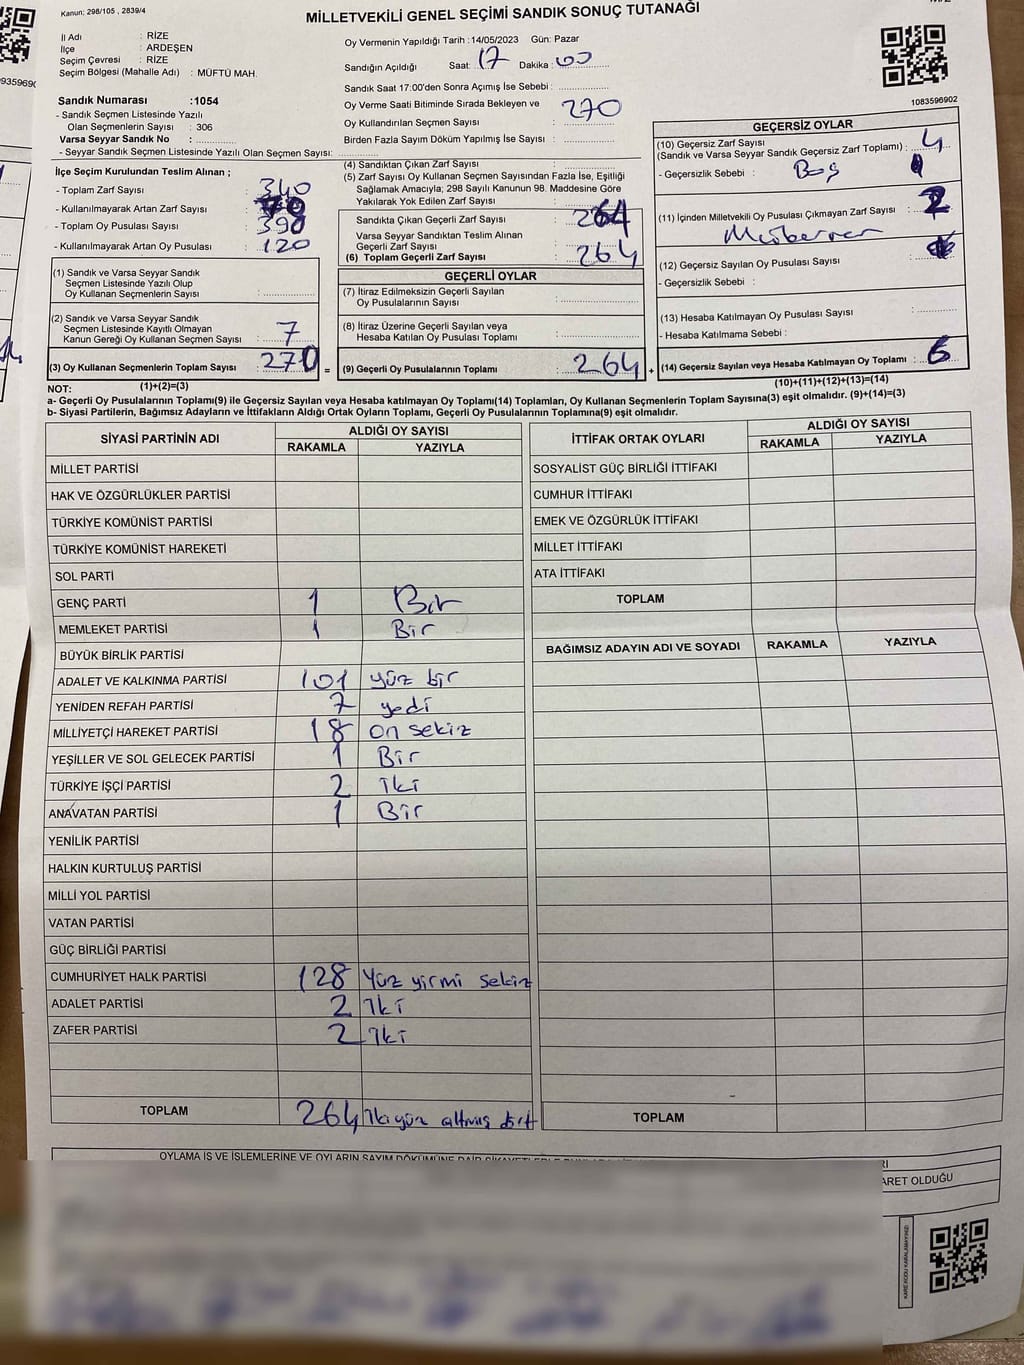 Kanun: 298/105 , 2839/4
MİLLETVEKİLİ GENEL SEÇİMİ SANDIK SONUÇ TUTANAĞI
İl Adı : RİZE
İlçe : ARDEŞEN
Seçim Çevresi : RİZE
Seçim Bölgesi (Mahalle Adı) : MÜFTÜ MAH.
Sandık Numarası :1054
- Sandık Seçmen Listesinde Yazılı
Olan Seçmenlerin Sayısı : 306
Varsa Seyyar Sandık No :
- Seyyar Sandık Seçmen Listesinde Yazılı Olan Seçmen Sayısı:
Oy Vermenin Yapıldığı Tarih :14/05/2023 Gün: Pazar
Sandığın Açıldığı Saat: 17 Dakika : 00
Sandık Saat 17:00'den Sonra Açımış İse Sebebi :
Oy Verme Saati Bitiminde Sırada Bekleyen ve
Oy Kullandırılan Seçmen Sayısı : 270
Birden Fazla Sayım Döküm Yapılmış İse Sayısı :
1083596902
İlçe Seçim Kurulundan Teslim Alınan ;
- Toplam Zarf Sayısı : 340
- Kullanılmayarak Artan Zarf Sayısı : 70
- Toplam Oy Pusulası Sayısı : 390
- Kullanılmayarak Artan Oy Pusulası : 120
(1) Sandık ve Varsa Seyyar Sandık
Seçmen Listesinde Yazılı Olup
Oy Kullanan Seçmenlerin Sayısı :
(2) Sandık ve Varsa Seyyar Sandık
Seçmen Listesinde Kayıtlı Olmayan
Kanun Gereği Oy Kullanan Seçmen Sayısı : 7
(3) Oy Kullanan Seçmenlerin Toplam Sayısı : 270 =
(4) Sandıktan Çıkan Zarf Sayısı :
(5) Zarf Sayısı Oy Kullanan Seçmen Sayısından Fazla İse, Eşitliği
Sağlamak Amacıyla; 298 Sayılı Kanunun 98. Maddesine Göre
Yakılarak Yok Edilen Zarf Sayısı :
Sandıkta Çıkan Geçerli Zarf Sayısı : 264
Varsa Seyyar Sandıktan Teslim Alınan
Geçerli Zarf Sayısı :
(6) Toplam Geçerli Zarf Sayısı : 264
GEÇERLİ OYLAR
(7) İtiraz Edilmeksizin Geçerli Sayılan
Oy Pusulalarının Sayısı :
(8) İtiraz Üzerine Geçerli Sayılan veya
Hesaba Katılan Oy Pusulası Toplamı :
(9) Geçerli Oy Pusulalarının Toplamı : 264 +
GEÇERSİZ OYLAR
(10) Geçersiz Zarf Sayısı
(Sandık ve Varsa Seyyar Sandık Geçersiz Zarf Toplamı) : 4
- Geçersizlik Sebebi : Boş
(11) İçinden Milletvekili Oy Pusulası Çıkmayan Zarf Sayısı : 2
(12) Geçersiz Sayılan Oy Pusulası Sayısı :
- Geçersizlik Sebebi :
(13) Hesaba Katılmayan Oy Pusulası Sayısı :
- Hesaba Katılmama Sebebi :
(14) Geçersiz Sayılan veya Hesaba Katılmayan Oy Toplamı : 6
NOT: (1)+(2)=(3)
(10)+(11)+(12)+(13)=(14)
a- Geçerli Oy Pusulasının Toplamı(9) ile Geçersiz Sayılan veya Hesaba katılmayan Oy Toplamı(14) Toplamları, Oy Kullanan Seçmenlerin Toplam Sayısına(3) eşit olmalıdır. (9)+(14)=(3)
b- Siyasi Partilerin, Bağımsız Adayların ve İttifakların Aldığı Ortak Oyların Toplamı, Geçerli Oy Pusulalarının Toplamına(9) eşit olmalıdır.
SİYASİ PARTİNİN ADI ALDIĞI OY SAYISI
RAKAMLA YAZIYLA
MİLLET PARTİSİ
HAK VE ÖZGÜRLÜKLER PARTİSİ
TÜRKİYE KOMÜNİST PARTİSİ
TÜRKİYE KOMÜNİST HAREKETİ
SOL PARTİ
GENÇ PARTİ 1 Bir
MEMLEKET PARTİSİ 1 Bir
BÜYÜK BİRLİK PARTİSİ
ADALET VE KALKINMA PARTİSİ 101 yüz bir
YENİDEN REFAH PARTİSİ 7 yedi
MİLLİYETÇİ HAREKET PARTİSİ 18 on sekiz
YEŞİLLER VE SOL GELECEK PARTİSİ 1 Bir
TÜRKİYE İŞÇİ PARTİSİ 2 iki
ANAVATAN PARTİSİ 1 Bir
YENİLİK PARTİSİ
HALKIN KURTULUŞ PARTİSİ
MİLLİ YOL PARTİSİ
VATAN PARTİSİ
GÜÇ BİRLİĞİ PARTİSİ
CUMHURİYET HALK PARTİSİ 128 Yüz yirmi sekiz
ADALET PARTİSİ 2 İki
ZAFER PARTİSİ 2 İki
TOPLAM 264 İkiyüz altmış dört
İTTİFAK ORTAK OYLARI ALDIĞI OY SAYISI
RAKAMLA YAZIYLA
SOSYALİST GÜÇ BİRLİĞİ İTTİFAKI
CUMHUR İTTİFAKI
EMEK VE ÖZGÜRLÜK İTTİFAKI
MİLLET İTTİFAKI
ATA İTTİFAKI
TOPLAM
BAĞIMSIZ ADAYIN ADI VE SOYADI RAKAMLA YAZIYLA
TOPLAM
OYLAMA İŞ VE İŞLEMLERİNE VE OYLARIN SAYIM DÖKÜMÜNE DAİR
ARET OLDUĞU